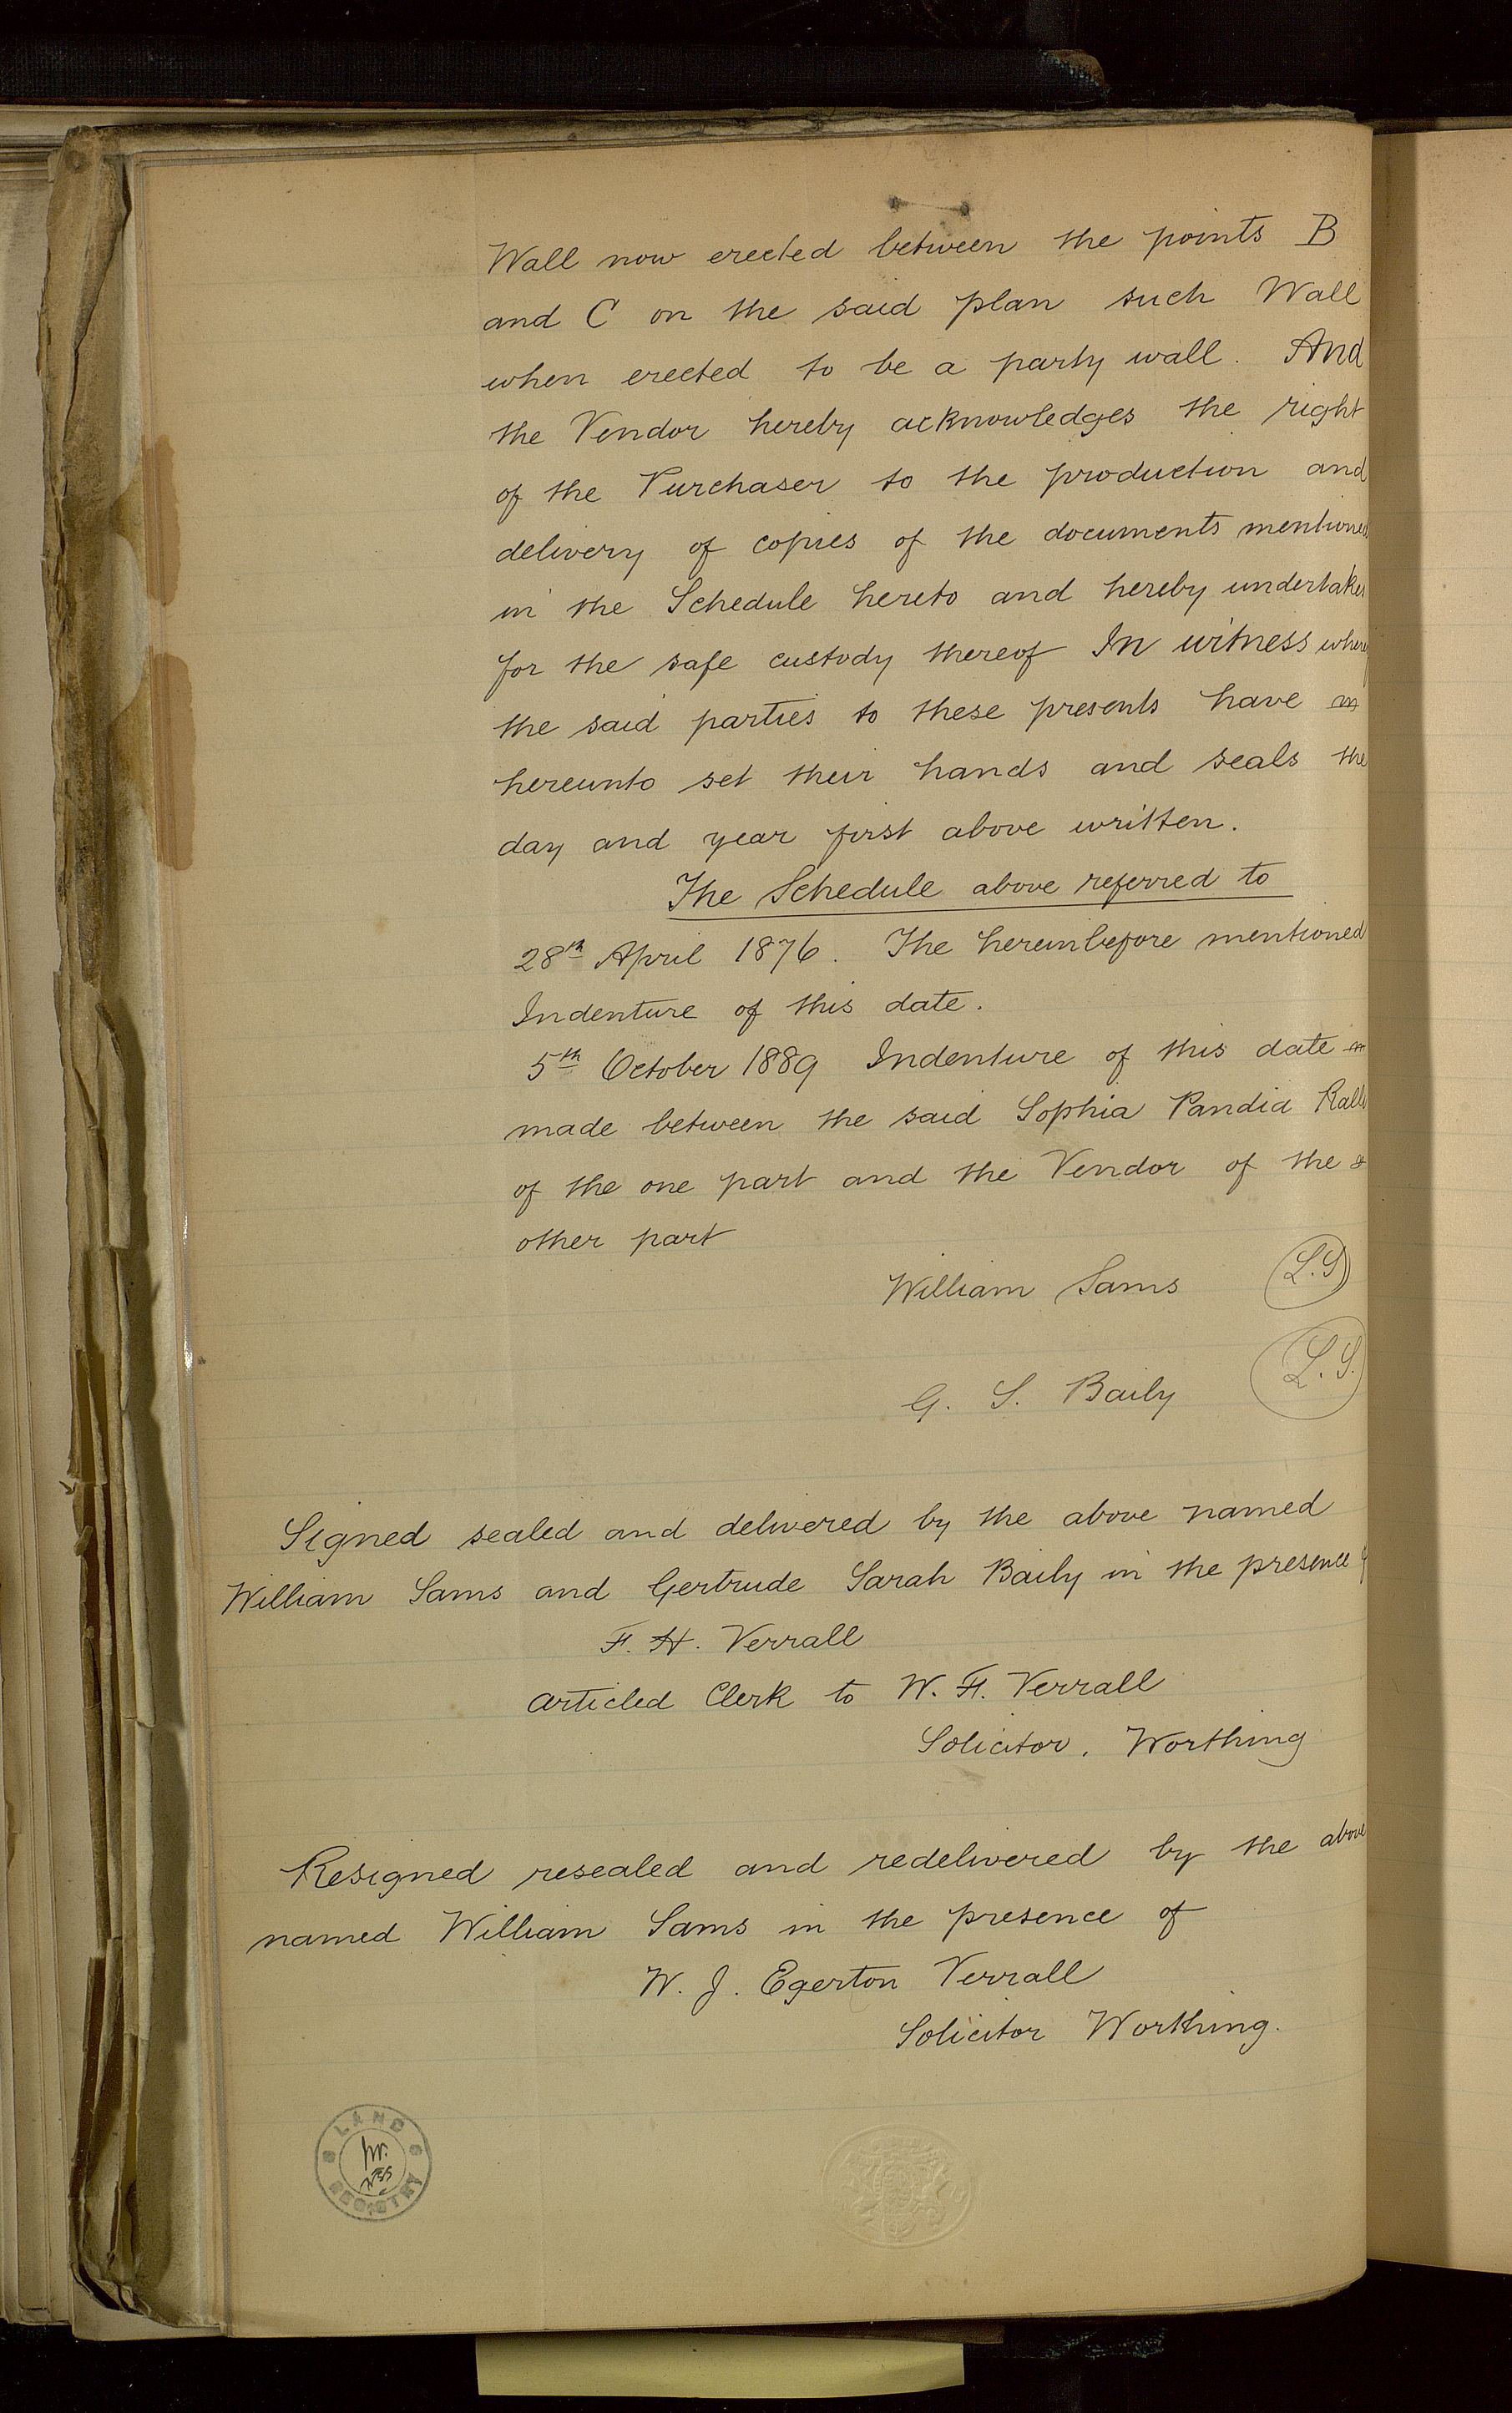 Wall now erected between the points B
and C on the said plan such Wall
when erected to be a party wall. And
the Vendor hereby acknowledges the right
of the Purchaser to the production and
delivery of copies of the documents mentioned
in the Schedule hereto and hereby undertakes
for the safe custody thereof In witness where
the said parties to these presents have
hereunto set their hands and seals the
day and year first above written.
The Schedule above referred to
28th April 1876. The hereinbefore mentioned
Indenture of this date.
5th October 1889 Indenture of this date
made between the said Sophia Pandia Ralli
of the one part and the Vendor of the
other part
William Sams L.S
G. S. Baily L.S.
Signed sealed and delivered by the above named
William Sams and Gertrude Sarah Baily in the presence of
F. H. Verrall
Articled Clerk to W. F. Verrall
Solicitor, Worthing
Resigned resealed and redelivered by the above
named William Sams in the presence of
W. J. Egerton Verrall
Solicitor Worthing.
LAND
REGISTRY